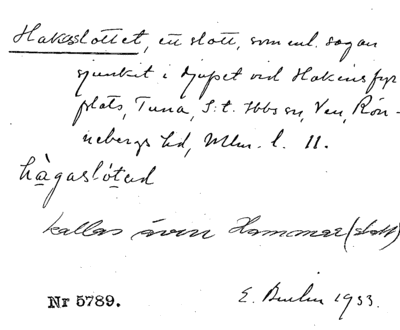 Haksslottet, ett slott, som enl. sagan
sjunkit i djupet vid Hakens fyr
plats, Tuna, S:t Ibbs sn, Ven, Rön-
nebergs hd, Mlm. l. 11.
hàgaslòtəd
kallas även Hammar(slott)
Nr 5789. E. 1933.